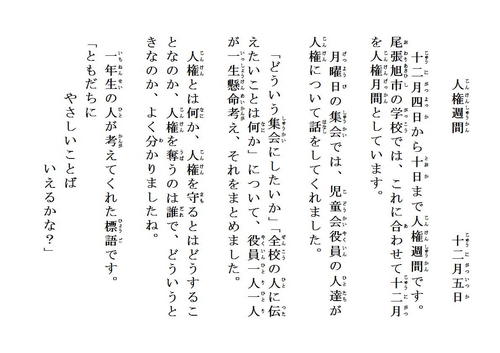 人権週間　　　　　　　十二月五日
十二月四日から十日まで人権週間です。
尾張旭市の学校では、これに合わせて十二月
を人権月間としています。
月曜日の集会では、児童会役員の人達が
人権について話をしてくれました。
「どういう集会にしたいか」「全校の人に伝
えたいことは何か」について、役員一人一人
が一生懸命考え、それをまとめました。
人権とは何か、人権を守るとはどうするこ
となのか、人権を奪うのは誰で、どういうと
きなのか、よく分かりましたね。
一年生の人が考えてくれた標語です。
「ともだちに
やさしいことば
いえるかな？」